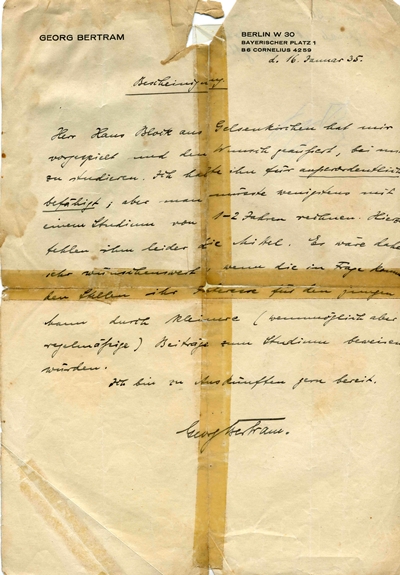 GEORG BERTRAM
BERLIN W 30
BAYERISCHER PLATZ 1
B6 CORNELIUS 4259
d. 16. Januar 35.
Bescheinigung
Herr Hans Block aus Gelsenkirchen hat mir
vorgespielt und den Wunsch geäußert, bei mir
zu studieren. Ich halte ihn für außerordentlich
befähigt; aber man müsste wenigstens mit
einem Studium von 1-2 Jahren rechnen. Hierzu
fehlen ihm leider die Mittel. Es wäre daher
sehr wünschenswert, wenn die in Frage kom
den Stellen ihr für den jungen
kann durch kleinere (wenn möglich aber
regelmäßige) Beiträge zum Studium beweisen
würden.
Ich bin zu Auskünften gern bereit.
Georg Bertram.